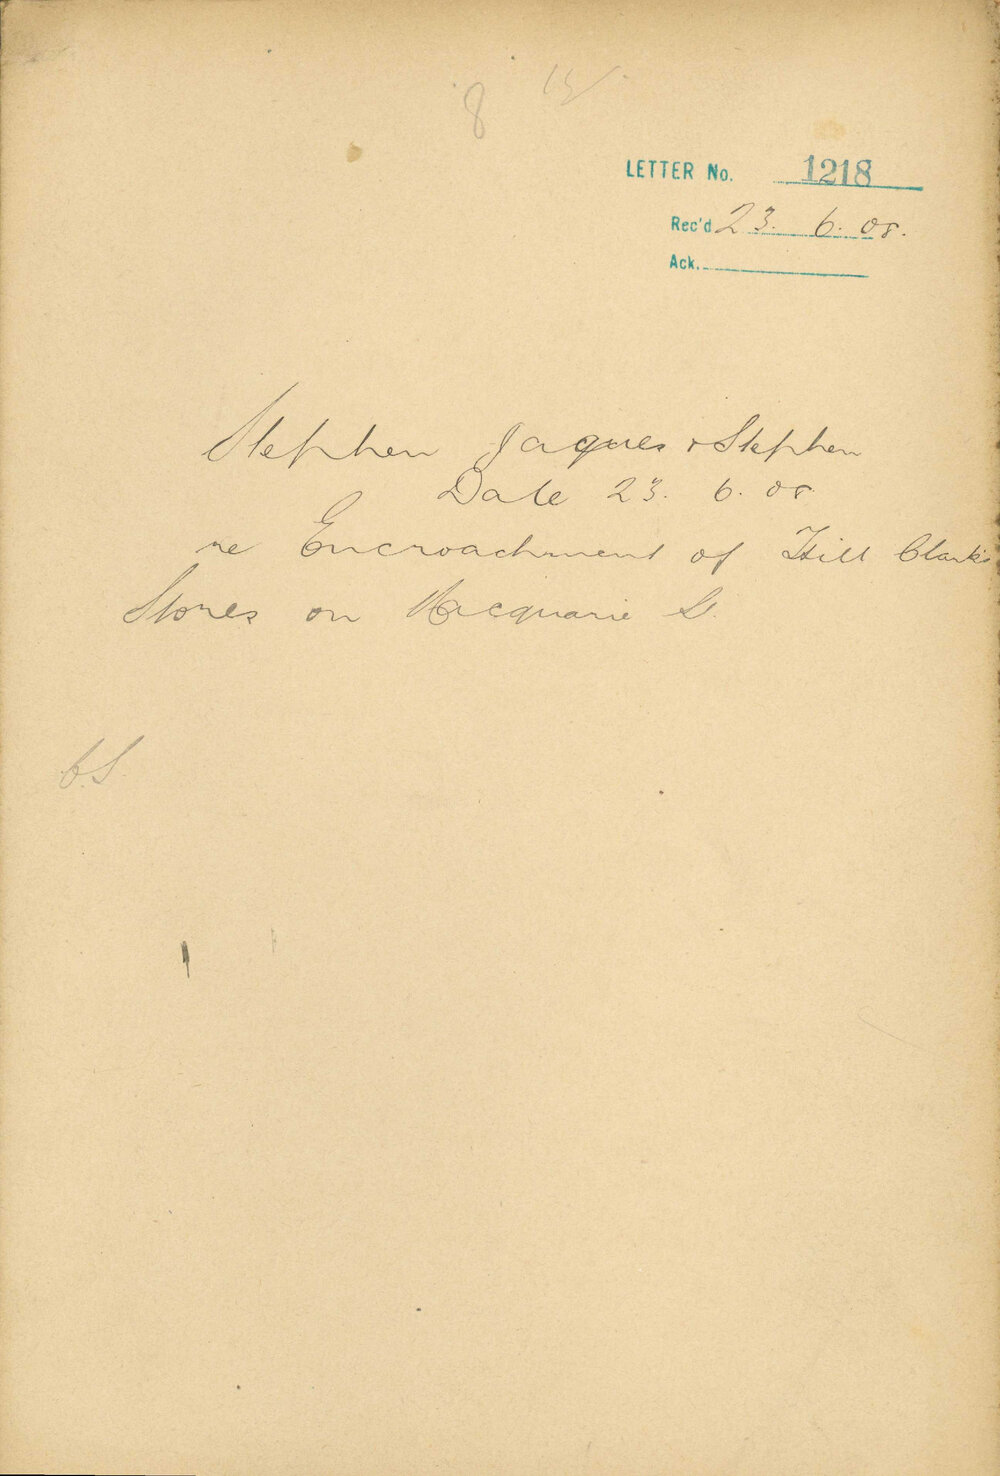 8 15/
LETTER No. 1218
Rec'd 23. 6. 08.
Ack.
Stephen Jaques & Stephen
Date 23. 6. 08
re Encroachment of Hill Clark's
Stores on Macquarie St.